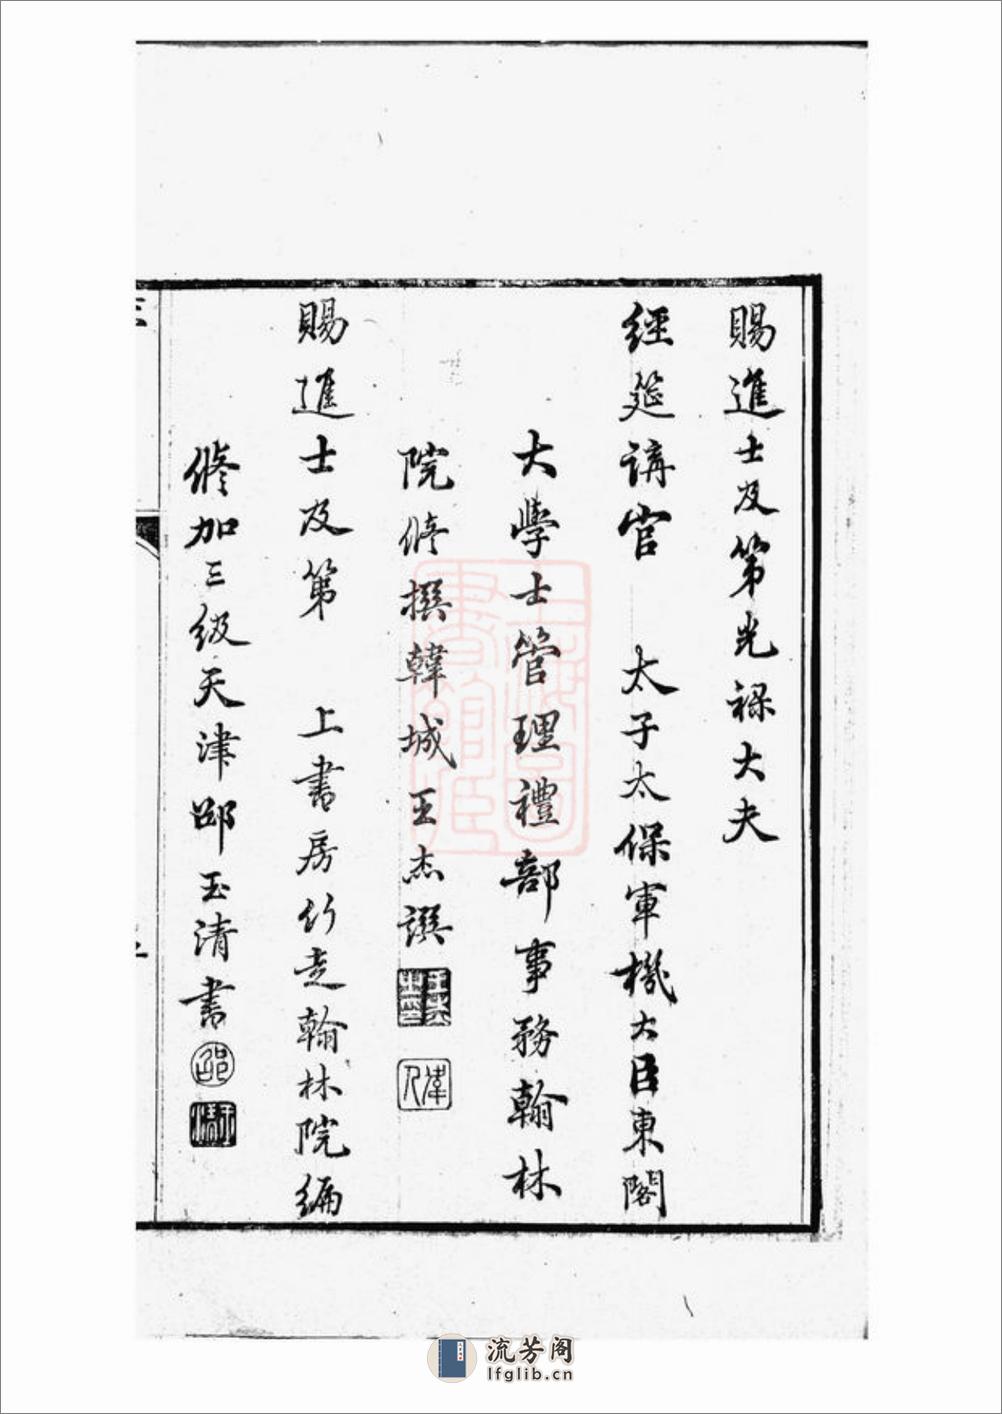 賜進士及第光祿大夫
經筵講官　太子太保軍機大臣東閣
大學士管理禮部事務翰林
院修撰韓城王杰譔
王杰之印
偉人
賜進士及第　上書房行走翰林院編
修加三級天津邵玉清書
邵
玉清
流芳阁
lfglib.cn